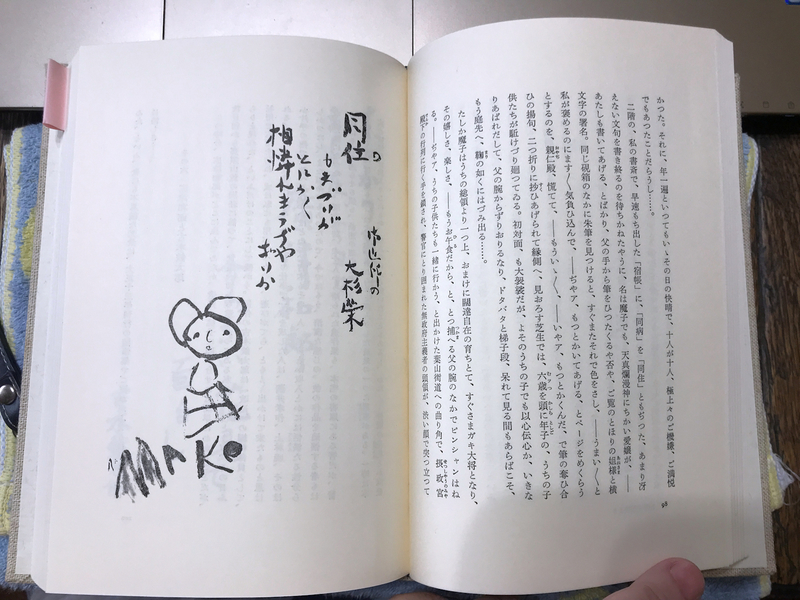 かつた。それに、年一遍といつてもいゝその日の快晴で、十人が十人、極上々のご機嫌、ご満悦
でもあつたことだらうし……。
二階の、私の書斎で、早速もち出した「宿帳」に、「同病」を「同住」ともぢつた、あまり冴
えない文句を書き終るのを待ちかねたやうに、名は魔子でも、天真爛漫神にちかい愛嬢が、――
あたしも書いてあげる、とばかり、父の手から筆をひつたくるや否や、ご覧のとほりの姐様と横
文字の署名。同じ硯箱のなかに朱筆を見つけると、すぐまたそれで色をさし、――うまい〳〵と
私が褒めるのにます〳〵気負ひ込んで、――ぢやア、もつとかいてあげる、とページをめくらう
とするのを、親仁殿、慌てて、――もうい〻〳〵、――いやア、もつとかくんだ、で筆の奪ひ合
ひの揚句、二つ折りに抄ひあげられて縁側へ、見おろす芝生では、六歳を頭に年子の、うちの子
供たちが駈けづり廻つてゐる。初対面、も大袈裟だが、よそのうちの子でも以心伝心か、いきな
りあばれだして、父の腕からずりおりるなり、ドタバタと梯子段、呆れて見る間もあらばこそ、
もう庭先へ、鞠の如くにはづみ出る……。
たしか魔子はうちの総領より一つ上、おまけに闊達自在の育ちとて、すぐさまガキ大将となり、
その嬉しさ、楽しさ、――もうお午食だから、と、とつ捕へる父の腕のなかでピンシャンはね
る。――ぢやア、うちの子供たちも一緒に行かう、と出かけた葉山街道への曲り角で、摂政宮
殿下の行列に行く手を鎖され、警官にとり囲まれた無政府主義者の頭領が、渋い顔で突つ立つて
56
大杉栄
同住の
とにかく
相憐れまうぢや
MAKO